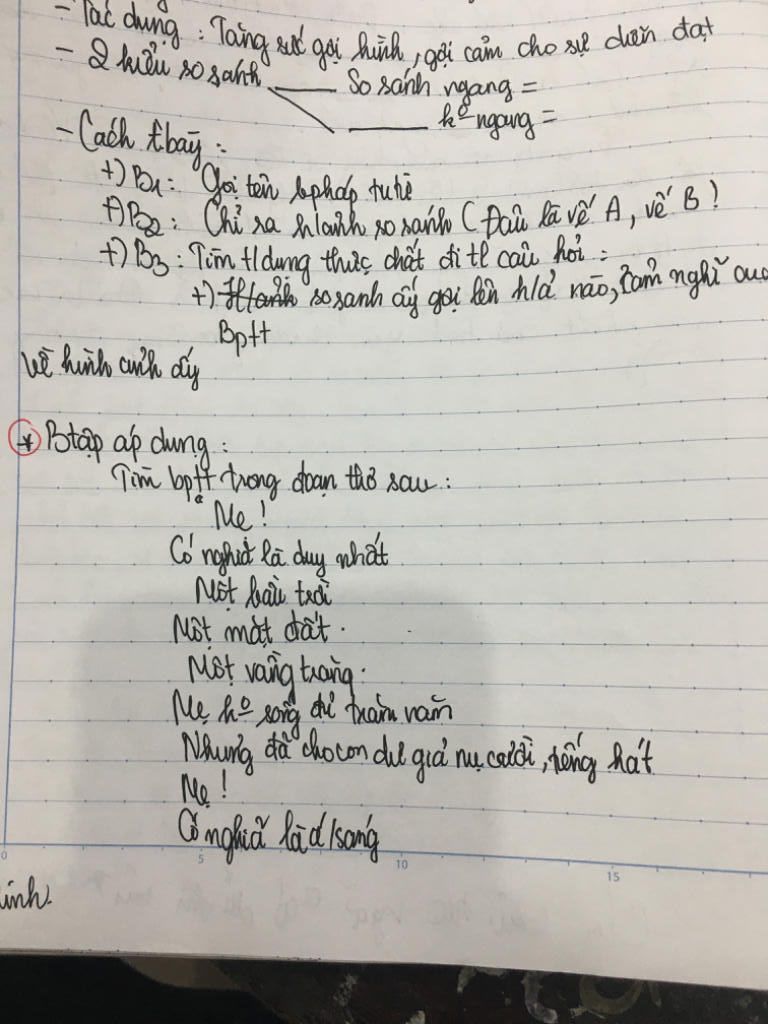 - Tác dụng : Tăng sức gợi hình, gợi cảm cho sự diễn đạt
- 2 kiểu so sánh So sánh ngang =
kº ngang =
- Cách tbày :
+) B1 : Gọi tên bpháp tu từ
+) B2 : Chỉ ra h/ảnh so sánh ( Đâu là vế A, vế B !
+) B3 : Tìm t/dụng thực chất đi tl câu hỏi :
+) H/ảnh so sánh ấy gợi lên h/ả nào, cảm nghĩ
Bptt
về hình ảnh đấy
* Btập áp dụng :
Tìm bptt trong đoạn thơ sau :
Mẹ !
Có nghĩa là duy nhất
Một bầu trời
Một mặt đất .
Một vầng trăng .
Mẹ kº sống đủ trăm năm
Nhưng đã cho con dư giả nụ cười, tiếng hát
Mẹ !
Có nghĩa là á/sáng
0 5 10 15